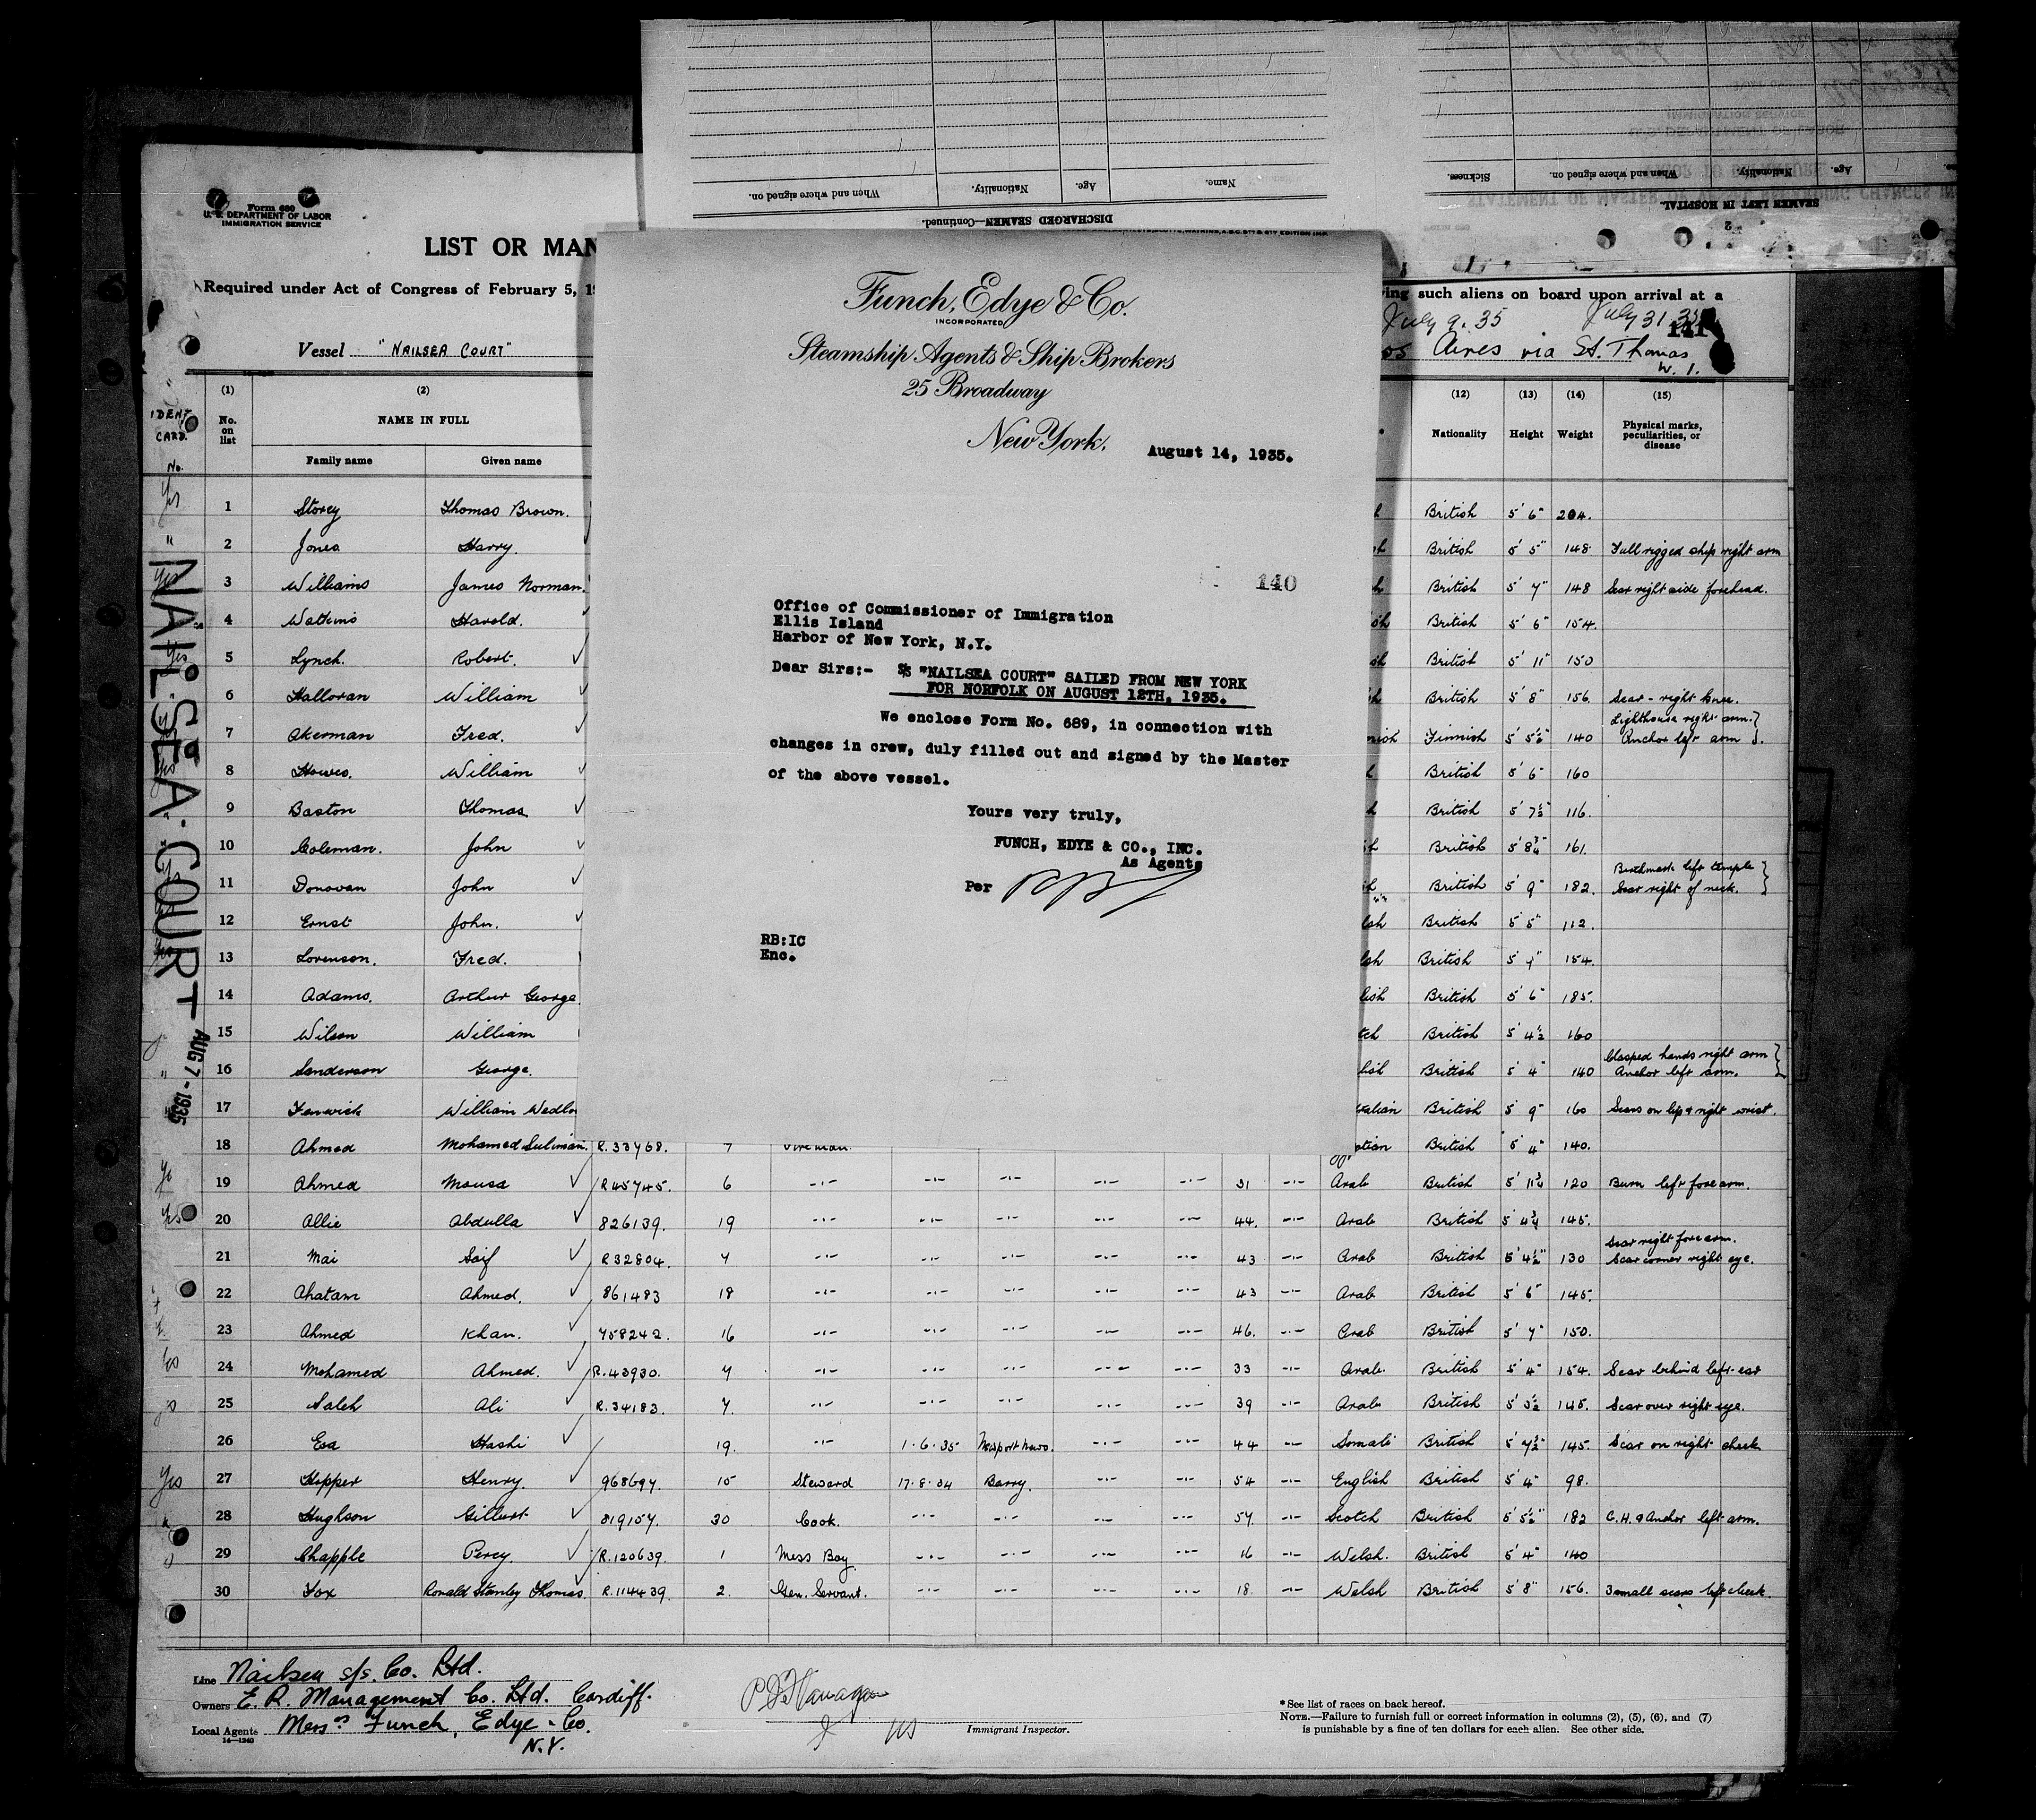 DISCHARGED SEAMEN—Continued.
Name.
Age.
Nationality.
When and where signed on.
SEAMEN LEFT IN HOSPITAL.
Age.
Nationality.
When and where signed on.
Sickness.
2
Form 689
U. S. DEPARTMENT OF LABOR
IMMIGRATION SERVICE
LIST OR MAN
Required under Act of Congress of February 5, 19
ving such aliens on board upon arrival at a
July 9. 35 July 31. 35
141
Vessel "NAILSEA COURT"
os Aires via St. Thomas
W. I.
IDENT
CARD.
No.
(1) (2) (12) (13) (14) (15)
No. on list NAME IN FULL Nationality Height Weight Physical marks, peculiarities, or disease
Family name Given name
NAILSEA COURT
AUG 7 - 1935
Funch, Edye & Co.
INCORPORATED
Steamship Agents & Ship Brokers
25 Broadway
New York.
August 14, 1935.
140
Office of Commissioner of Immigration
Ellis Island
Harbor of New York, N.Y.
Dear Sirs:- SS "NAILSEA COURT" SAILED FROM NEW YORK
FOR NORFOLK ON AUGUST 12TH, 1935.
We enclose Form No. 689, in connection with
changes in crew, duly filled out and signed by the Master
of the above vessel.
Yours very truly,
FUNCH, EDYE & CO., INC.
As Agents
Per
RB:IC
Enc.
1 Storey Thomas Brown. British 5' 6" 204.
2 Jones Harry. British 5' 5" 148 Full rigged ship right arm
3 Williams James Norman. British 5' 7" 148 Scar right side forehead.
4 Watkins Harold. British 5' 6" 154.
5 Lynch. Robert. British 5' 11" 150
6 Halloran William British 5' 8" 156 Scar - right knee.
7 Akerman Fred. Finnish 5' 5½" 140 Lighthouse right arm. Anchor left arm.
8 Howes. William British 5' 6" 160
9 Baston Thomas British 5' 7½" 116.
10 Coleman. John British 5' 8¾" 161.
11 Donovan John British 5' 9" 182. Birthmark left temple Scar right of neck.
12 Ernst John. British 5' 5" 112.
13 Lorenson. Fred. British 5' 7" 154.
14 Adams. Arthur George. British 5' 6" 185.
15 Wilson William British 5' 4½ 160
16 Sanderson George. British 5' 4" 140 Clasped hands right arm Anchor left arm.
17 Fenwick William British 5' 9" 160 Scars on lip & right wrist.
18 Ahmed Mohamed Suliman. R.33768. 7 Fireman British 5' 4" 140.
19 Ahmed Mousa R45745. 6 -"- -"- -"- -"- -"- 31 -"- Arab British 5' 11¾ 120 Burn left forearm.
20 Allie Abdulla 826139. 19 -"- -"- -"- -"- -"- 44. -"- Arab British 5' 4¾ 145.
21 Mai Saif R32804. 7 -"- -"- -"- -"- -"- 43 -"- Arab British 5' 4½" 130 Scar right forearm. Scar corner right eye.
22 Ahatam Ahmed. 861483 18 -"- -"- -"- -"- -"- 43 -"- Arab British 5' 6" 145.
23 Ahmed Khan. 758242. 16 -"- -"- -"- -"- -"- 46. -"- Arab British 5' 7" 150.
24 Mohamed Ahmed. R.43930. 7 -"- -"- -"- -"- -"- 33 -"- Arab. British 5' 4" 154. Scar behind left ear
25 Saleh Ali R.34183. 7. -"- -"- -"- -"- -"- 39 -"- Arab British 5' 3½ 145. Scar over right eye.
26 Esa Hashi 19. -"- 1.6.35 Newport News. -"- -"- 44 -"- Somali British 5' 7½" 145. Scar on right cheek
27 Hopper Henry. 968697. 15 Steward 17.8.34 Barry. -"- -"- 54 -"- English British 5' 4" 98.
28 Hughson Gilbert 819157. 30 Cook. -"- -"- -"- -"- 57. -"- Scotch British 5' 5½" 182 C.H. & Anchor left arm.
29 Chapple Percy. R.120639. 1 Mess Boy. -"- -"- -"- -"- 16 -"- Welsh. British 5' 4" 140
30 Fox Ronald Stanley Thomas. R.114439. 2. Gen. Servant. -"- -"- -"- -"- 18 -"- Welsh British 5' 8" 156. 3 small scars left cheek.
Line Nailsea s/s. Co. Ltd.
Owners E. R. Management Co. Ltd. Cardiff.
Local Agents Messrs Funch, Edye & Co.
N.Y.
14—1240
Immigrant Inspector.
*See list of races on back hereof.
NOTE.—Failure to furnish full or correct information in columns (2), (5), (6), and (7)
is punishable by a fine of ten dollars for each alien. See other side.